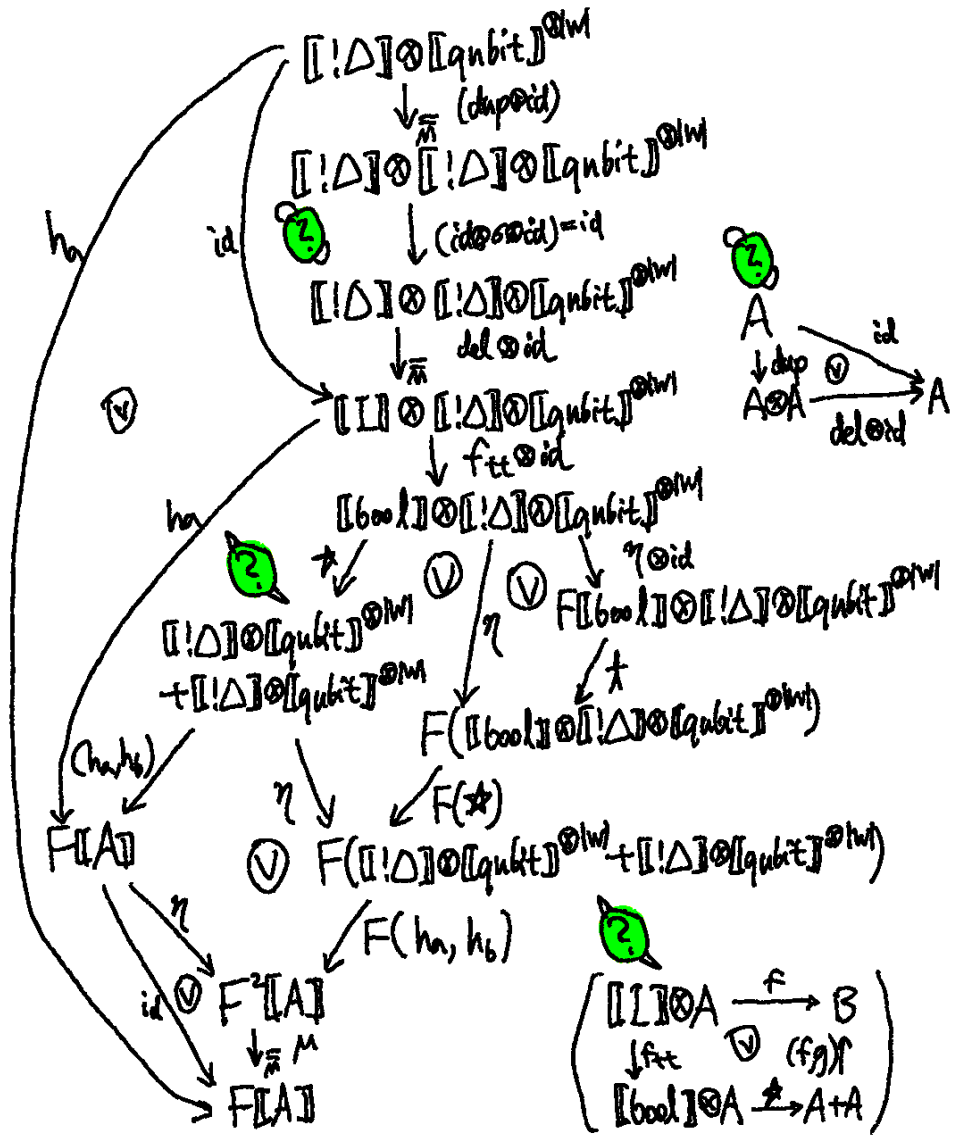 ⟦!Δ⟧⊗⟦qubit⟧^⊗|w|
(dup⊗id)
⟦!Δ⟧⊗⟦!Δ⟧⊗⟦qubit⟧^⊗|w|
ha
id
?
(id⊗σ⊗id)=id
?
⟦!Δ⟧⊗⟦!Δ⟧⊗⟦qubit⟧^⊗|w|
A
id
del⊗id
dup
A⊗A
A
del⊗id
⟦I⟧⊗⟦!Δ⟧⊗⟦qubit⟧^⊗|w|
f_tt⊗id
ha
⟦bool⟧⊗⟦!Δ⟧⊗⟦qubit⟧^⊗|w|
?
☆
η
η⊗id
F⟦bool⟧⊗⟦!Δ⟧⊗⟦qubit⟧^⊗|w|
⟦!Δ⟧⊗⟦qubit⟧^⊗|w|
+⟦!Δ⟧⊗⟦qubit⟧^⊗|w|
t
F(⟦bool⟧⊗⟦!Δ⟧⊗⟦qubit⟧^⊗|w|)
(ha,hb)
η
F(☆)
F⟦A⟧
F(⟦!Δ⟧⊗⟦qubit⟧^⊗|w|+⟦!Δ⟧⊗⟦qubit⟧^⊗|w|)
η
F(ha,hb)
?
id
F²⟦A⟧
μ
F⟦A⟧
⟦I⟧⊗A f B
f_tt (f,g)
⟦bool⟧⊗A ☆ A+A